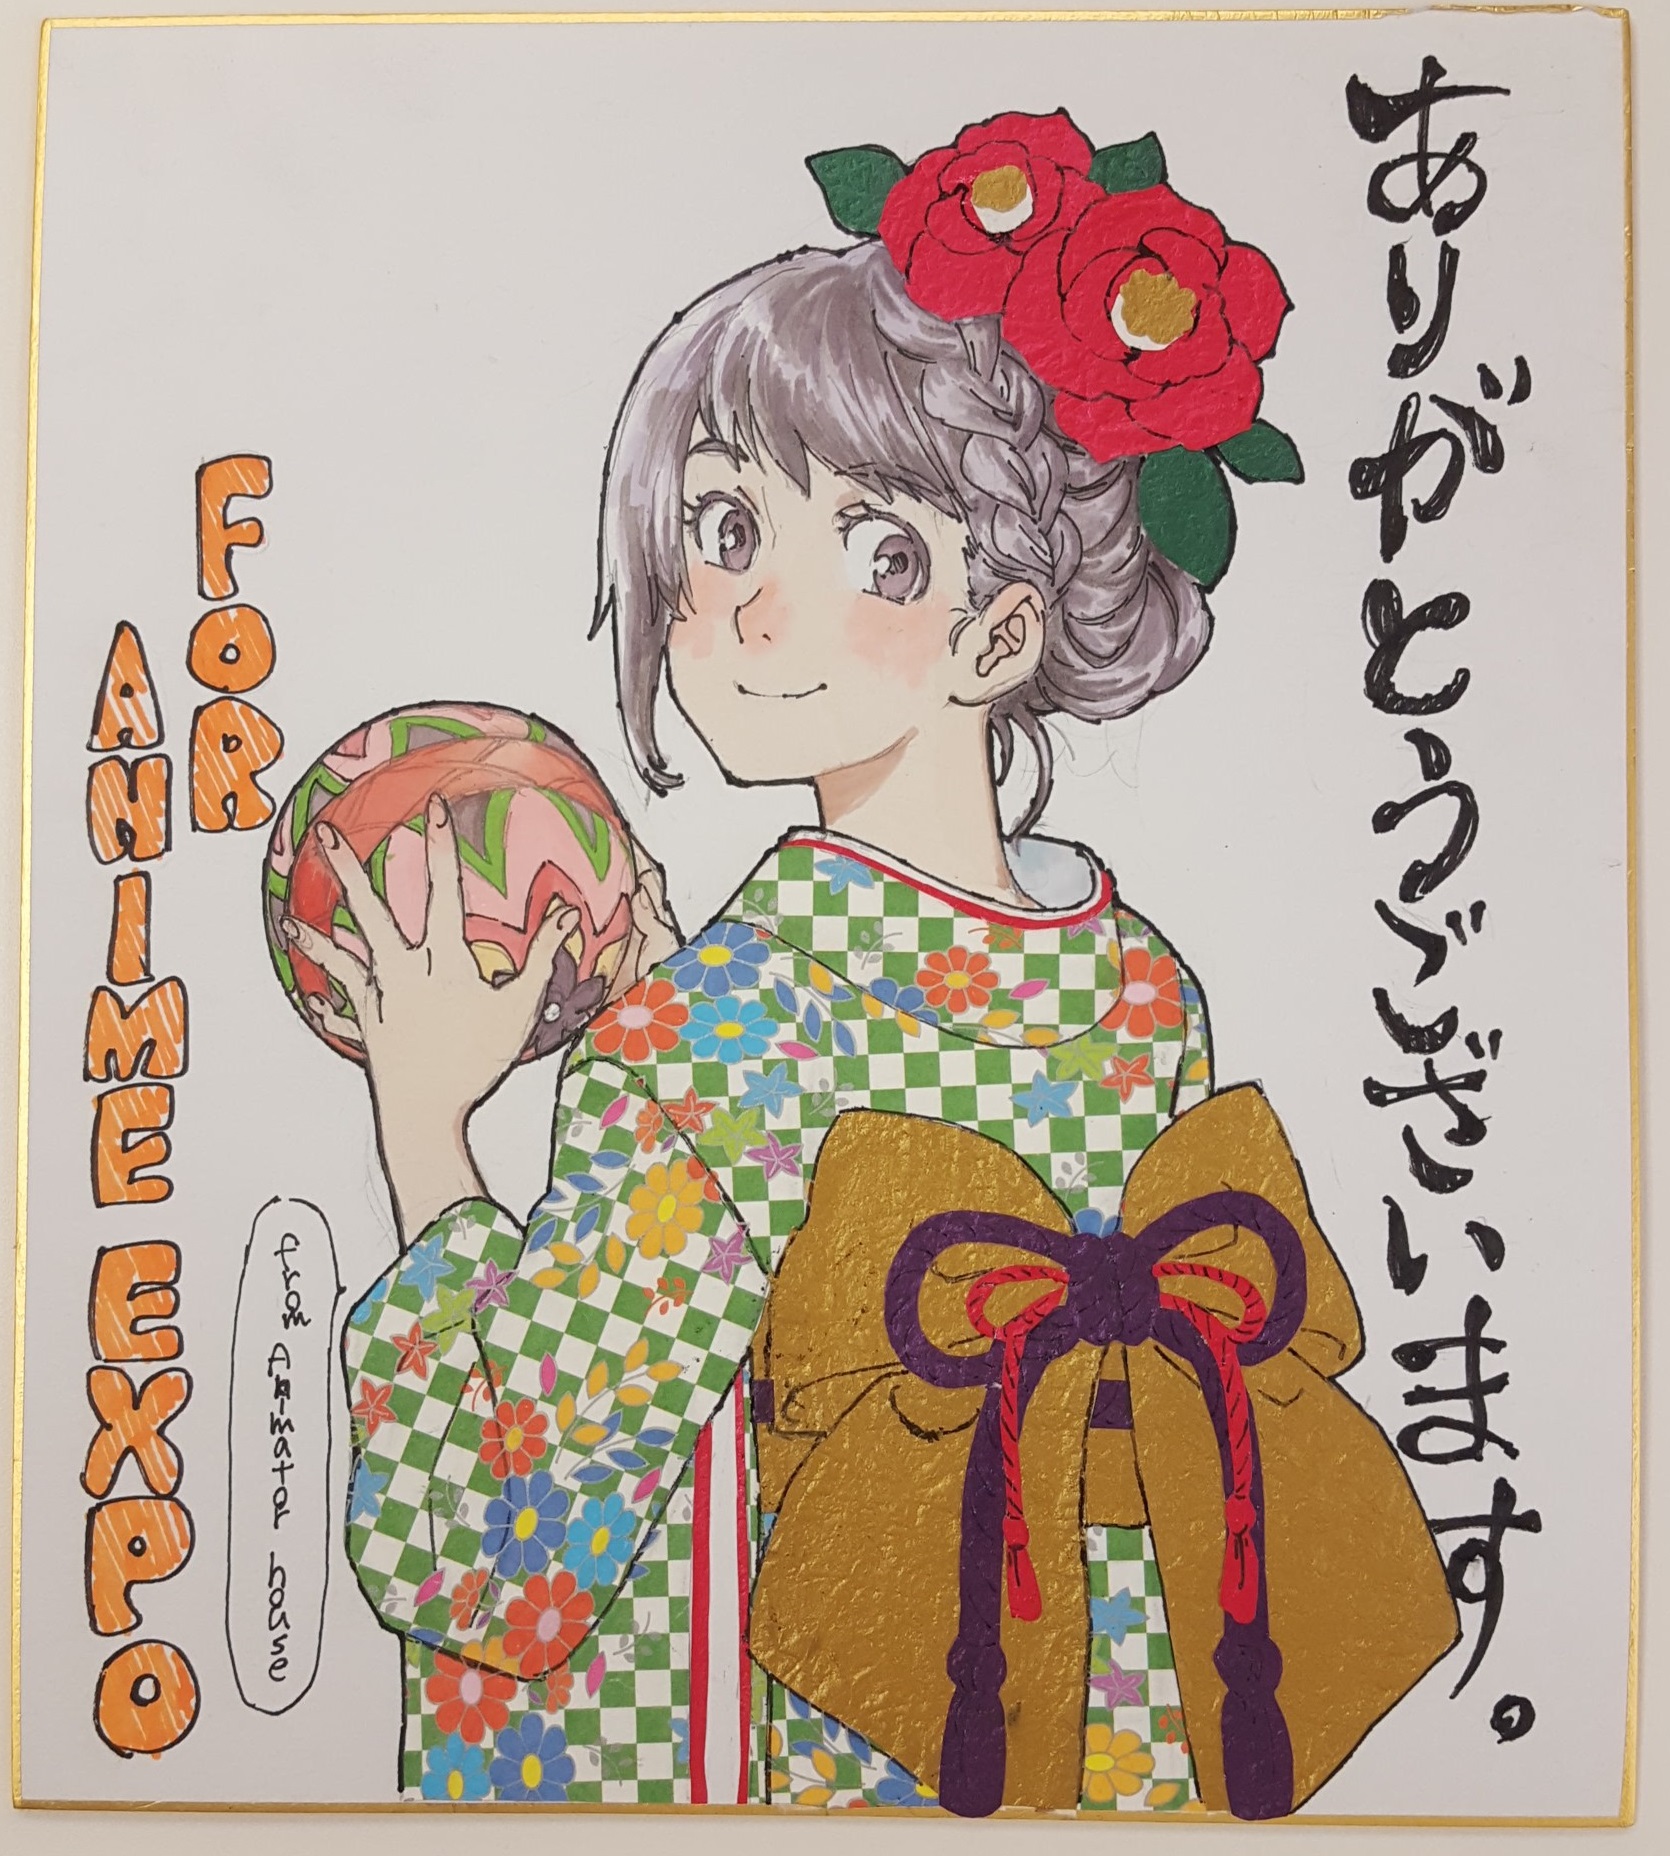 ありがとうございます。
FOR
ANIME EXPO
from animator house